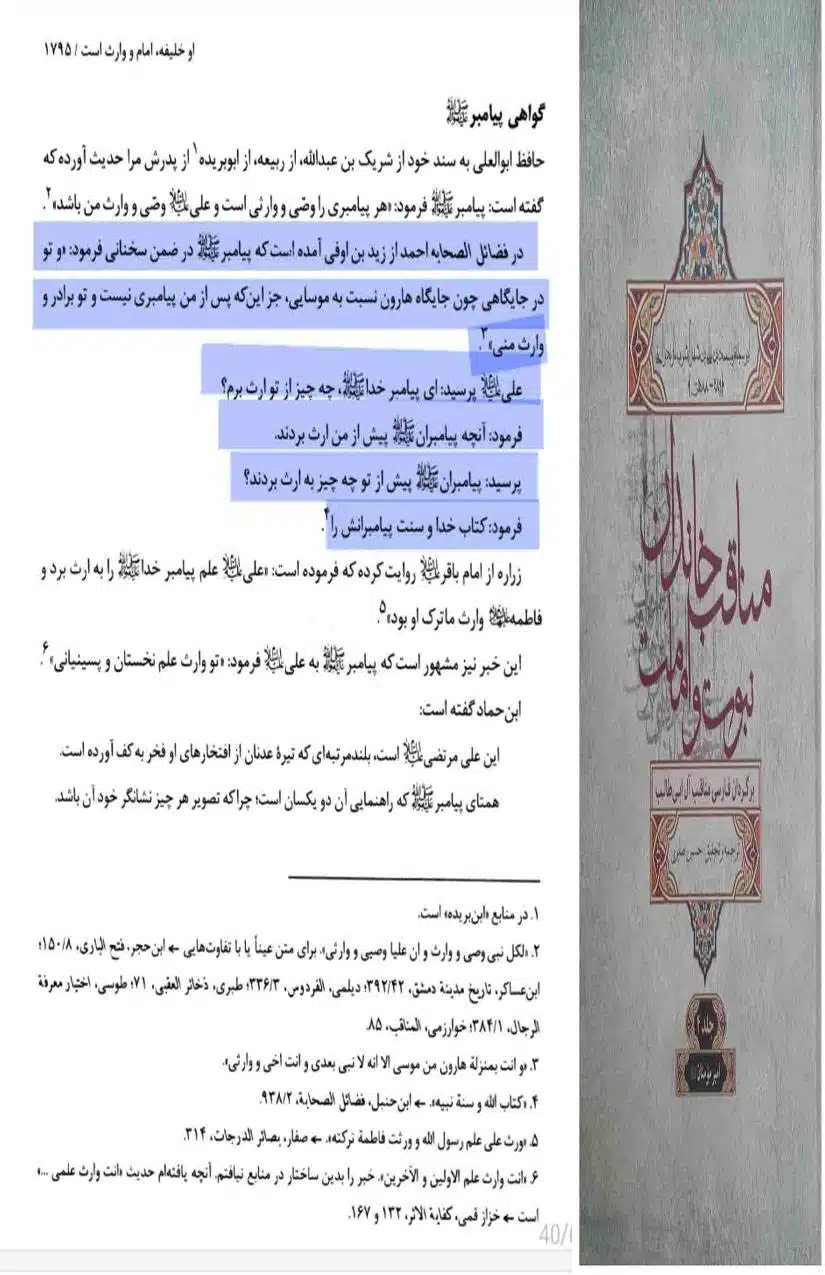 او خلیفه، امام و وارث است / ۱۷۹۵
گواهی پیامبر ﷺ
حافظ ابوالعلی به سند خود از شریک بن عبدالله، از ربیعه، از ابوبریده۱ از پدرش مرا حدیث آورده که
گفته است: پیامبر ﷺ فرمود: «هر پیامبری را وصّی و وارثی است و علی علیه‌السلام وصّی و وارث من باشد»۲.
در فضائل الصحابه احمد از زید بن اوفی آمده است که پیامبر ﷺ در ضمن سخنانی فرمود: «و تو
در جایگاهی چون جایگاه هارون نسبت به موسایی، جز این‌که پس از من پیامبری نیست و تو برادر و
وارث منی»۳.
علی علیه‌السلام پرسید: ای پیامبر خدا ﷺ، چه چیز از تو ارث برم؟
فرمود: آنچه پیامبران ﷺ پیش از من ارث بردند.
پرسید: پیامبران ﷺ پیش از تو چه چیز به ارث بردند؟
فرمود: کتاب خدا و سنت پیامبرانش را۴.
زراره از امام باقر علیه‌السلام روایت کرده که فرموده است: «علی علیه‌السلام علم پیامبر خدا ﷺ را به ارث برد و
فاطمه علیهاالسلام وارث ماترک او بود»۵.
این خبر نیز مشهور است که پیامبر ﷺ به علی علیه‌السلام فرمود: «تو وارث علم نخستان و پسینیانی»۶.
ابن‌حماد گفته است:
این علی مرتضی علیه‌السلام است، بلندمرتبه‌ای که تیرهٔ عدنان از افتخارهای او فخر به کف آورده است.
همتای پیامبر ﷺ که راهنمایی آن دو یکسان است؛ چراکه تصویر هر چیز نشانگر خود آن باشد.
۱. در منابع «ابن‌بریده» است.
۲. «لکل نبی وصی و وارث و ان علیا وصیی و وارثی». برای متن عیناً یا با تفاوت‌هایی ← ابن‌حجر، فتح الباری، ۱۵۰/۸؛
ابن‌عساکر، تاریخ مدینة دمشق، ۳۹۲/۴۲؛ دیلمی، الفردوس، ۳۳۶/۳؛ طبری، ذخائر العقبی، ۷۱؛ طوسی، اختیار معرفة
الرجال، ۳۸۴/۱؛ خوارزمی، المناقب، ۸۵.
۳. «و انت بمنزلة هارون من موسی الا انه لا نبی بعدی و انت اخی و وارثی».
۴. «کتاب الله و سنة نبیه». ← ابن‌حنبل، فضائل الصحابة، ۹۳۸/۲.
۵. «ورث علی علم رسول الله و ورثت فاطمة ترکته». ← صفار، بصائر الدرجات، ۳۱۴.
۶. «انت وارث علم الاولین و الآخرین». خبر را بدین ساختار در منابع نیافتم. آنچه یافته‌ام حدیث «انت وارث علمی ...»
است ← خزاز قمی، کفایة الاثر، ۱۳۲ و ۱۶۷.
40/
مناقب خاندان
نبوت و امامت
برگردان فارسی مناقب آل ابی‌طالب
ترجمه و تحقیق: حسین صابری
جلد ۴
امیر مؤمنان